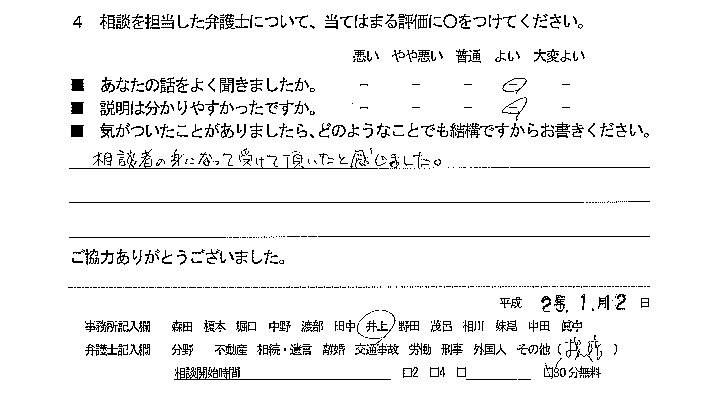 4 相談を担当した弁護士について、当てはまる評価に○をつけてください。
悪い やや悪い 普通 よい 大変よい
■ あなたの話をよく聞きましたか。 － － － － －
■ 説明は分かりやすかったですか。 － － － － －
■ 気がついたことがありましたら、どのようなことでも結構ですからお書きください。
相談者の身になって受けて頂いたと感じました。
ご協力ありがとうございました。
平成 25. 1. 12 日
事務所記入欄 森田 榎本 堀口 中野 渡部 田中 井上 野田 茂呂 相川 妹尾 中田 田中
弁護士記入欄 分野 不動産 相続・遺言 離婚 交通事故 労働 刑事 外国人 その他 ( )
相談開始時間 □2 □4 □ 30分無料